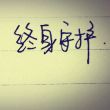 终身守护.